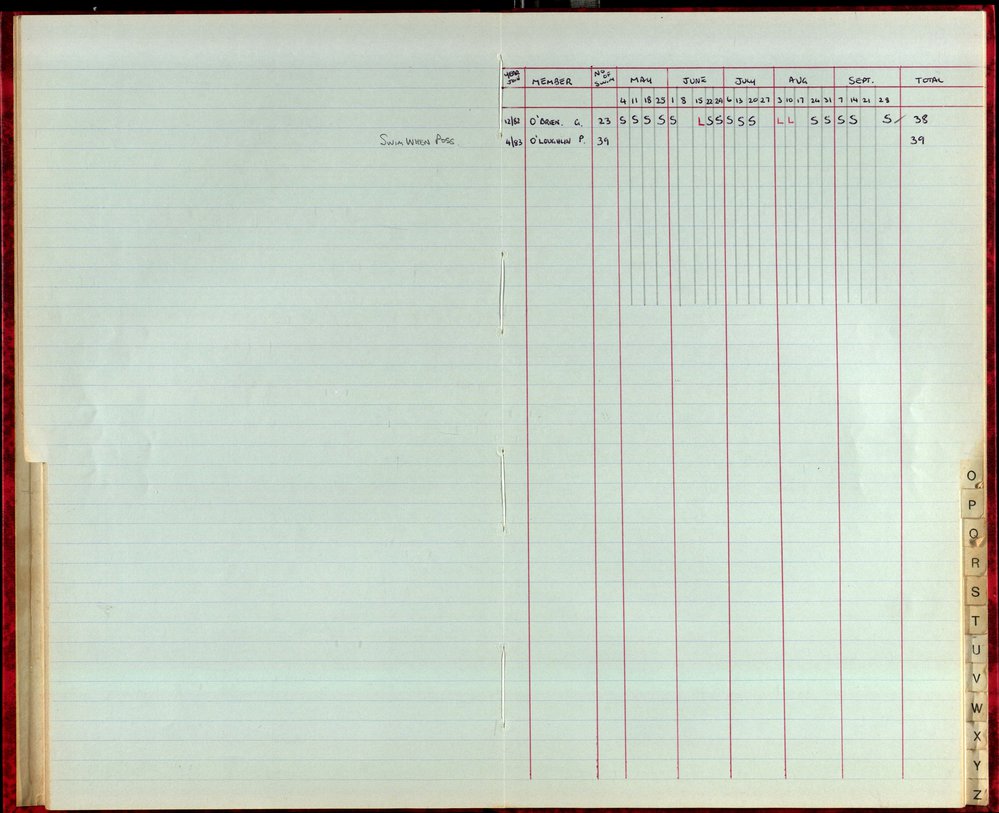 YEAR JOIN MEMBER NO. OF SWIM MAY JUNE JULY AUG SEPT. TOTAL
4 11 18 25 1 8 15 22 29 6 13 20 27 3 10 17 24 31 7 14 21 28
12/82 O'BRIEN. G. 23 S S S S S L S S S S S L L S S S S S / 38
SWIM WHEN POSS 4/83 O'LOUGHLIN P. 39 39
O
P
Q
R
S
T
U
V
W
X
Y
Z